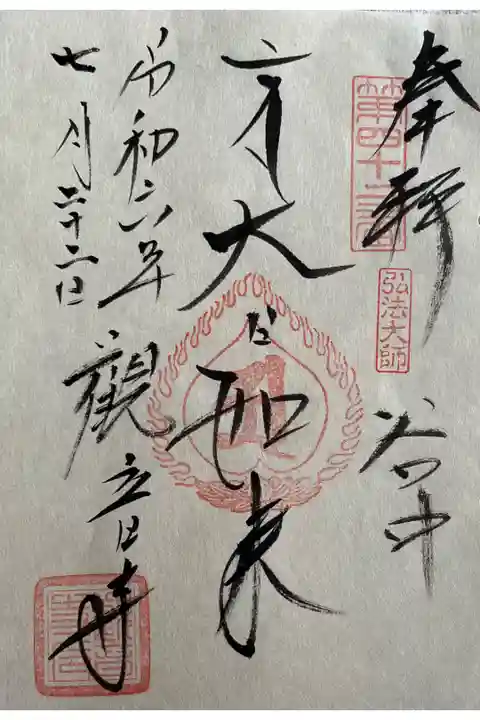 奉拝
谷中
第四十二番
弘法大師
大日如来
令和六年
七月二十二日
観音寺